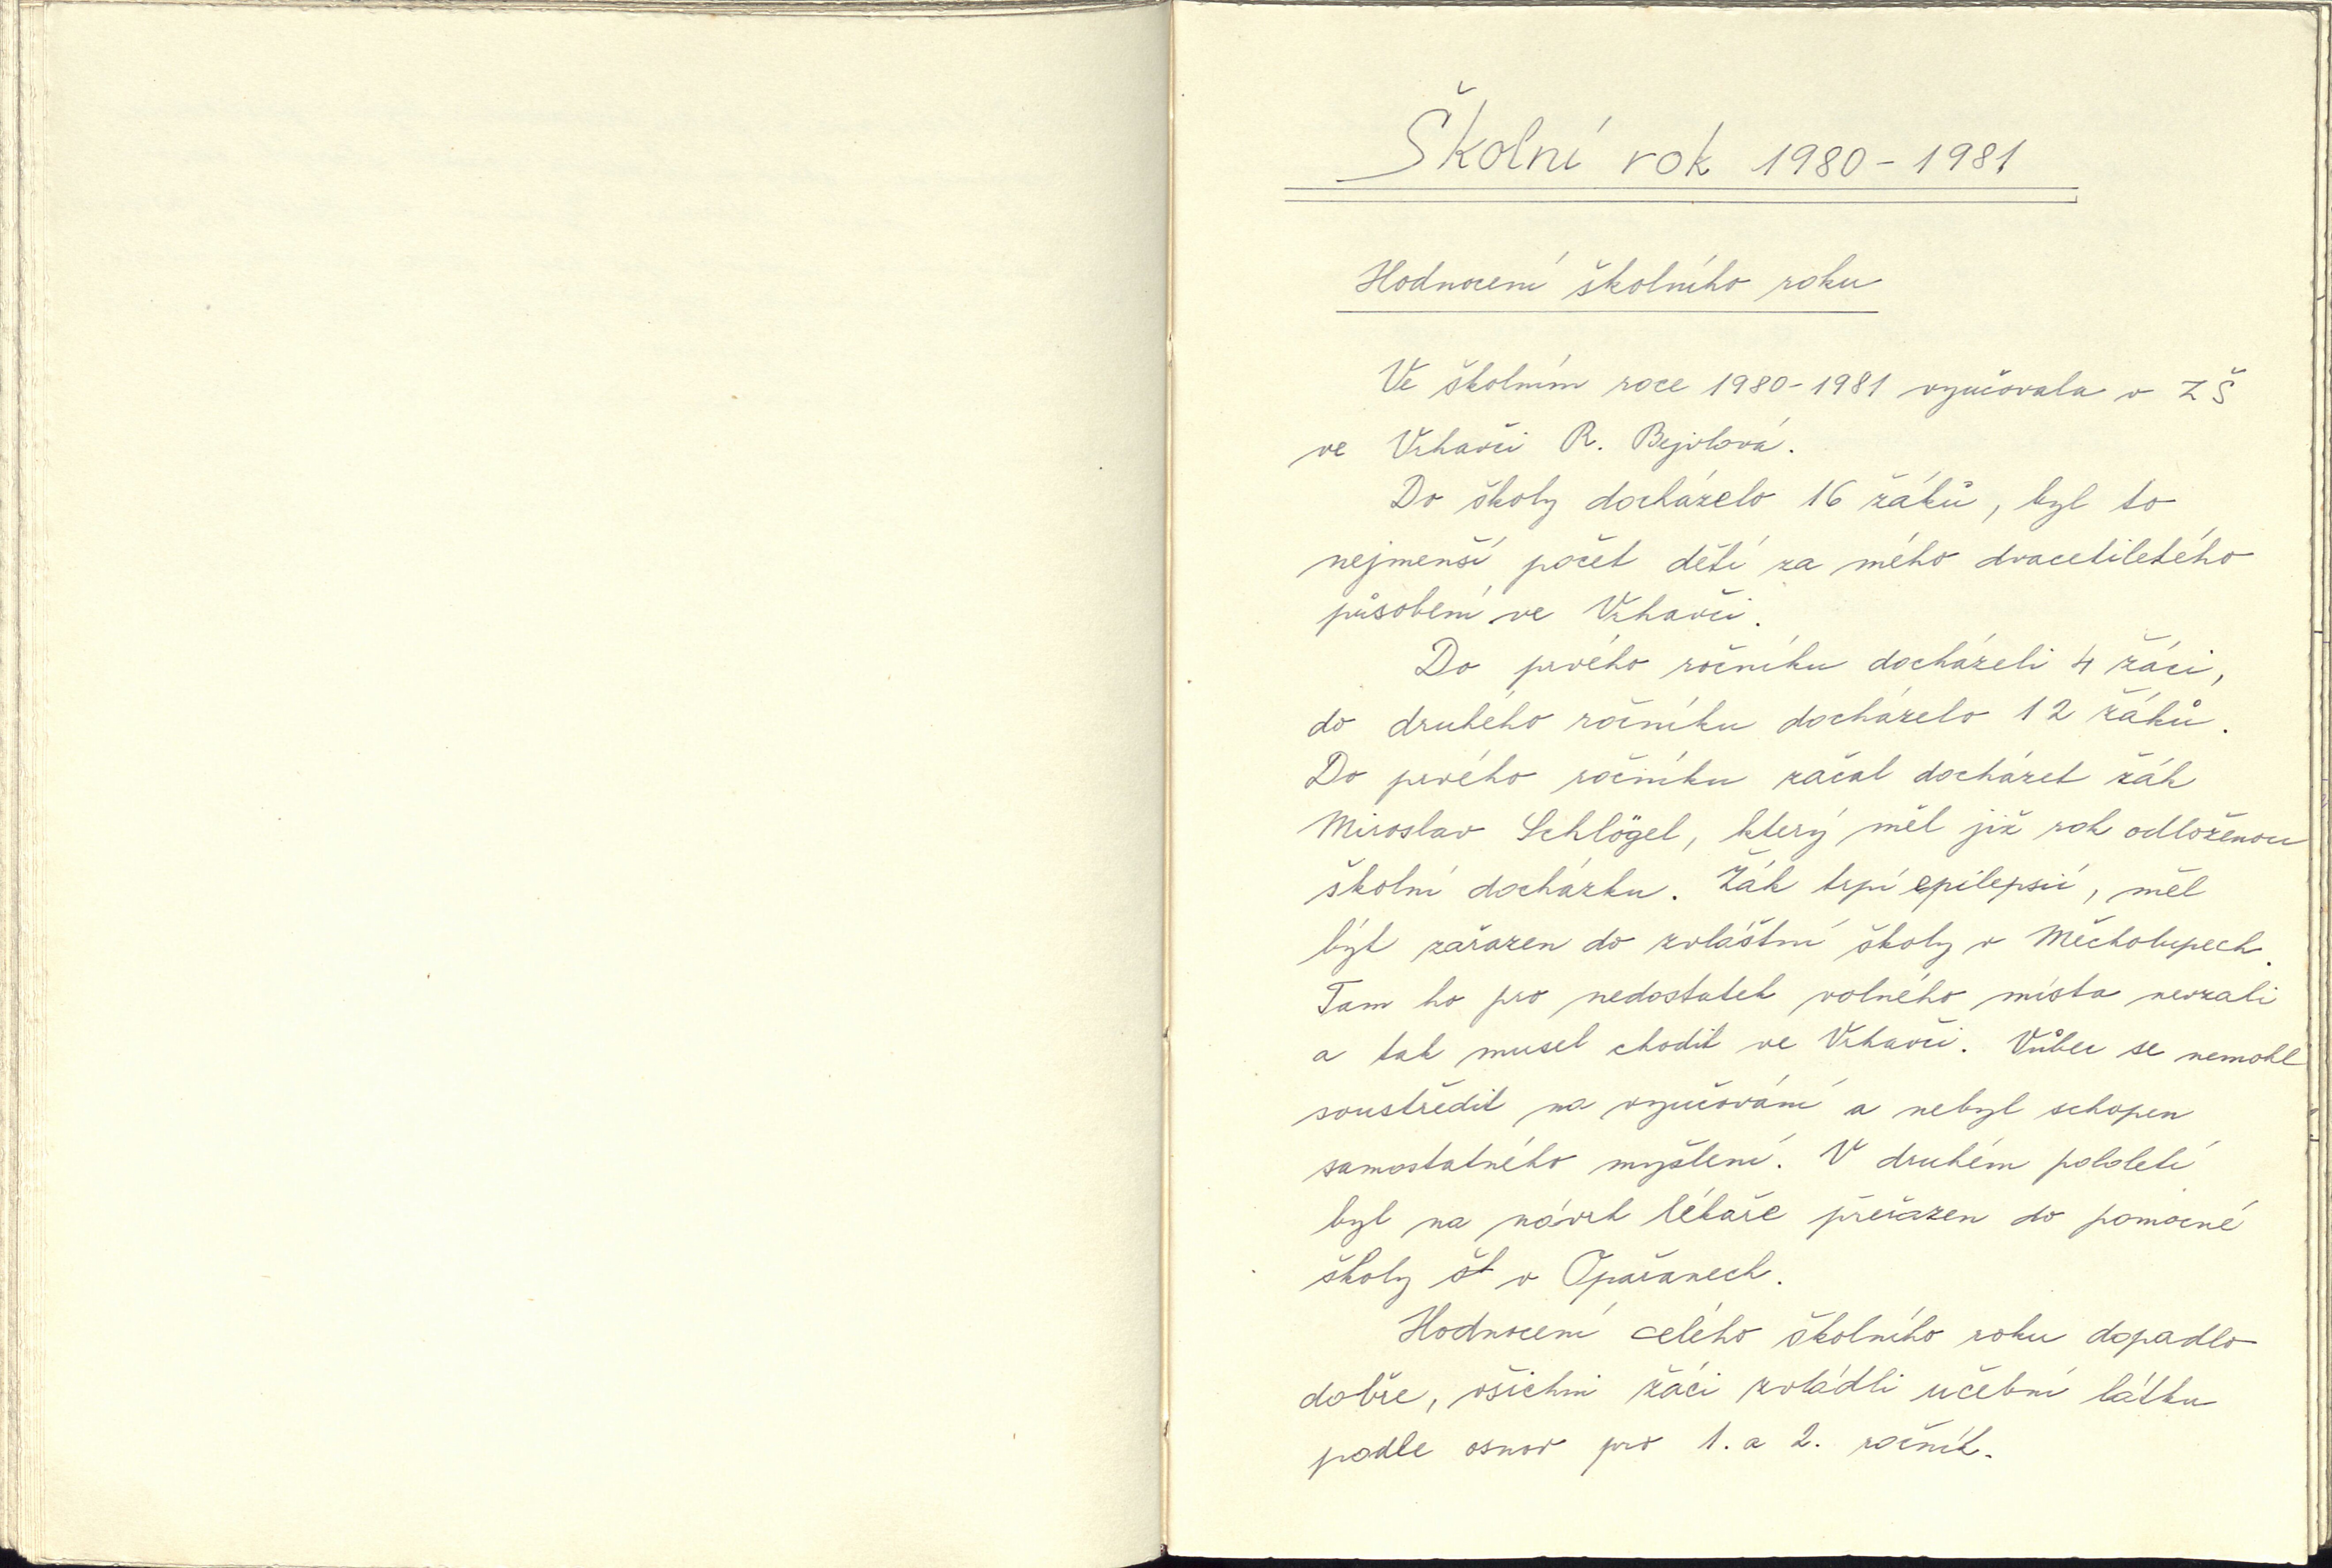 Školní rok 1980-1981
Hodnocení školního roku
Ve školním roce 1980-1981 vyučovala v ZŠ
ve Vrhavči R. Bejvlová.
Do školy docházelo 16 žáků, byl to
nejmenší počet dětí za mého dvacetiletého
působení ve Vrhavči.
Do prvého ročníku docházeli 4 žáci,
do druhého ročníku docházelo 12 žáků.
Do prvého ročníku začal docházet žák
Miroslav Schlögel, který měl již rok odloženou
školní docházku. Žák trpí epilepsií, měl
být zařazen do zvláštní školy v Měcholupech.
Tam ho pro nedostatek volného místa nevzali
a tak musel chodit ve Vrhavči. Vůbec se nemohl
soustředit na vyučování a nebyl schopen
samostatného myšlení. V druhém pololetí
byl na návrh lékaře přeřazen do pomocné
školy v Opařanech.
Hodnocení celého školního roku dopadlo
dobře, všichni žáci zvládli učební látku
podle osnov pro 1. a 2. ročník.